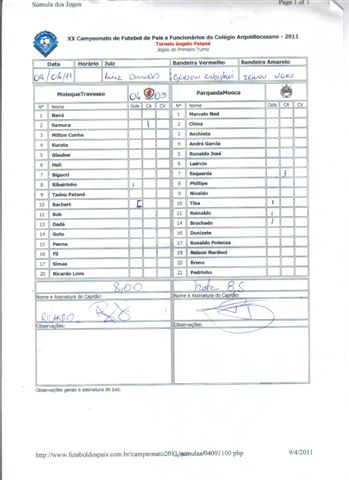 Súmula dos Jogos Page 1 of 1
XX Campeonato de Futebol de Pais e Funcionários do Colégio Arquidiocesano - 2011
Torneio Angelo Patamé
Jogos do Primeiro Turno
Data Horário Juiz Bandeira Vermelho Bandeira Amarelo
09/04/11
MolequeTravesso 04 03 ParquedaMooca
Nº Nome Gols CA CV Nº Nome Gols CA CV
1 Naná 1 Marcelo Ned
2 Samuca 2 China
3 Milton Cunha 3 Anchieta
4 Kurata 4 André Garcia
5 Glauber 5 Ronaldo José
6 Heli 6 Laércio
7 Bigucci 7 Esquerda
8 Ribeirinho 8 Phillipe
9 Tadeu Patané 9 Nivaldo
10 Bachert 10 Tiba
11 Bob 11 Rainaldo
13 Dadá 14 Brochado
14 Guto 16 Donizete
15 Penna 17 Ronaldo Potenza
16 Fil 19 Nelson Nardoni
17 Simas 20 Breno
20 Ricardo Love 21 Pedrinho
8,00 Nota 8,5
Nome e Assinatura do Capitão: Nome e Assinatura do Capitão:
RICARDO
Observações: Observações:
Observações gerais e assinatura do juiz:
http://www.futeboldospais.com.br/campeonato2011/sumulas/04091100.php 9/4/2011